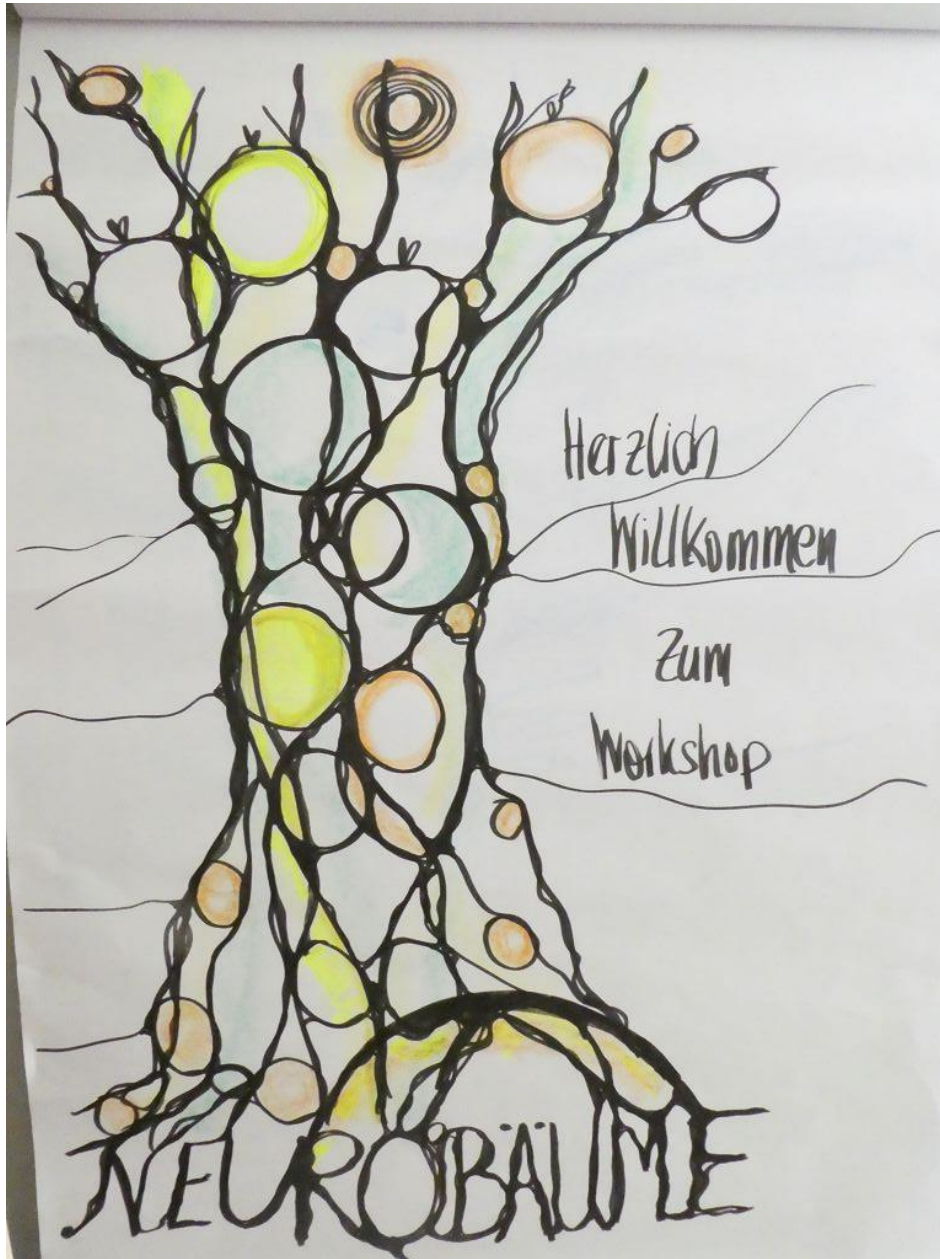 Herzlich
Willkommen
Zum
Workshop
NEUROBÄUME